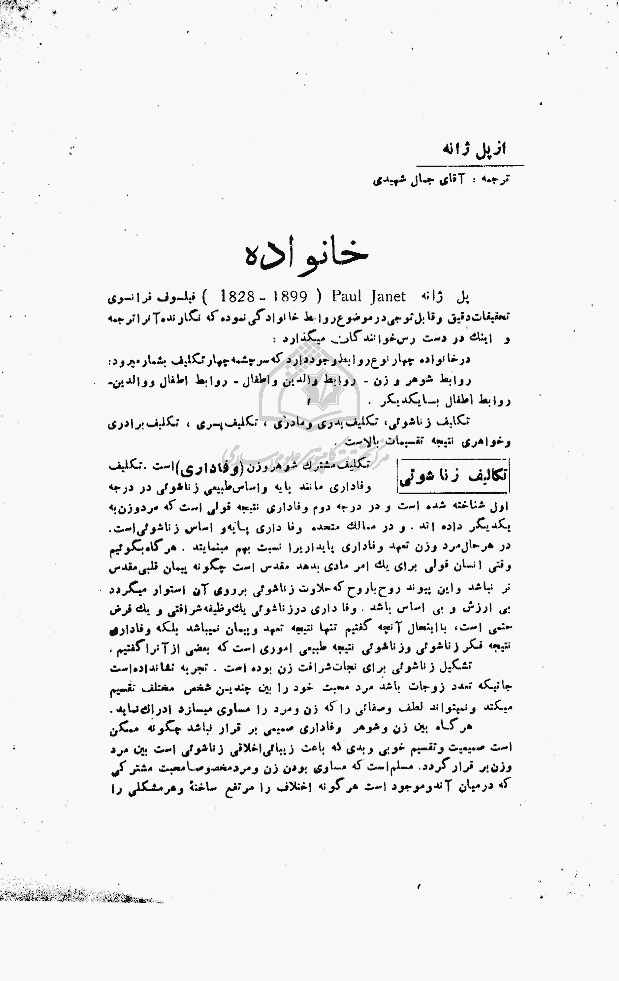 از پل ژانه
ترجمه : آقای جمال شهیدی
خانواده
پل ژانه Paul Janet ( 1899 - 1828 ) فیلسوف فرانسوی
تحقیقات دقیق و قابل توجی در موضوع روابط خانوادگی نموده که نگارنده آنرا ترجمه
و اینك در دست رس خوانندگان میگذارد :
در خانواده چهار نوع روابط وجود دارد که سرچشمه چهار تکلیف بشمار میرود:
روابط شوهر و زن - روابط والدین و اطفال - روابط اطفال ووالدین-
روابط اطفال با یکدیگر .
تکالیف زناشوئی، تکلیف پدری و مادری ، تکلیف پسری ، تکلیف برادری
وخواهری نتیجه تقسیمات بالاست .
تکالیف زناشوئی
تکلیف مشترك شوهر وزن (وفاداری) است . تکلیف
وفاداری مانند پایه و اساس طبیعی زناشوئی در درجه
اول شناخته شده است و در درجه دوم وفاداری نتیجه قولی است که مرد وزن به
یکدیگر داده اند . و در ممالك متحده وفاداری پایه و اساس زناشوئی است.
در هر حال مرد وزن تعهد وفاداری پایدار را نسبت بهم مینمایند . هر گاه بگوئیم
وقتی انسان قولی برای یك امر مادی بدهد مقدس است چگونه پیمان قلبی مقدس
تر نباشد واین پیوند روح باروح که حلاوت زناشوئی برروی آن استوار میگردد
بی ارزش و بی اساس باشد . وفاداری در زناشوئی یك وظیفه شرافتی و یك فرض
حتمی است، بااینحال آنچه گفتیم تنها نتیجه تعهد وپیمان نمیباشد بلکه وفاداری
نتیجه فکر زناشوئی وزناشوئی نتیجه طبیعی اموری است که بعضی از آنرا گفتیم .
تشکیل زناشوئی برای نجات شرافت زن بوده است . تجربه نشانداده است
جائیکه تعدد زوجات باشد مرد محبت خود را بین چندین شخص مختلف تقسیم
میکند و نمیتواند لطف وصفائی را که زن ومرد را مساوی میسازد ادراك نماید.
هر گاه بین زن وشوهر وفاداری صمیمی بر قرار نباشد چگونه ممکن
است صمیمیت وتقسیم خوبی وبدی که باعث زیبائی اخلاقی زناشوئی است بین مرد
وزن بر قرار گردد. مسلم است که مساوی بودن زن ومرد مخصوصا محبت مشترکی
که درمیان آندو موجود است هر گونه اختلاف را مرتفع ساخته وهر مشکلی را